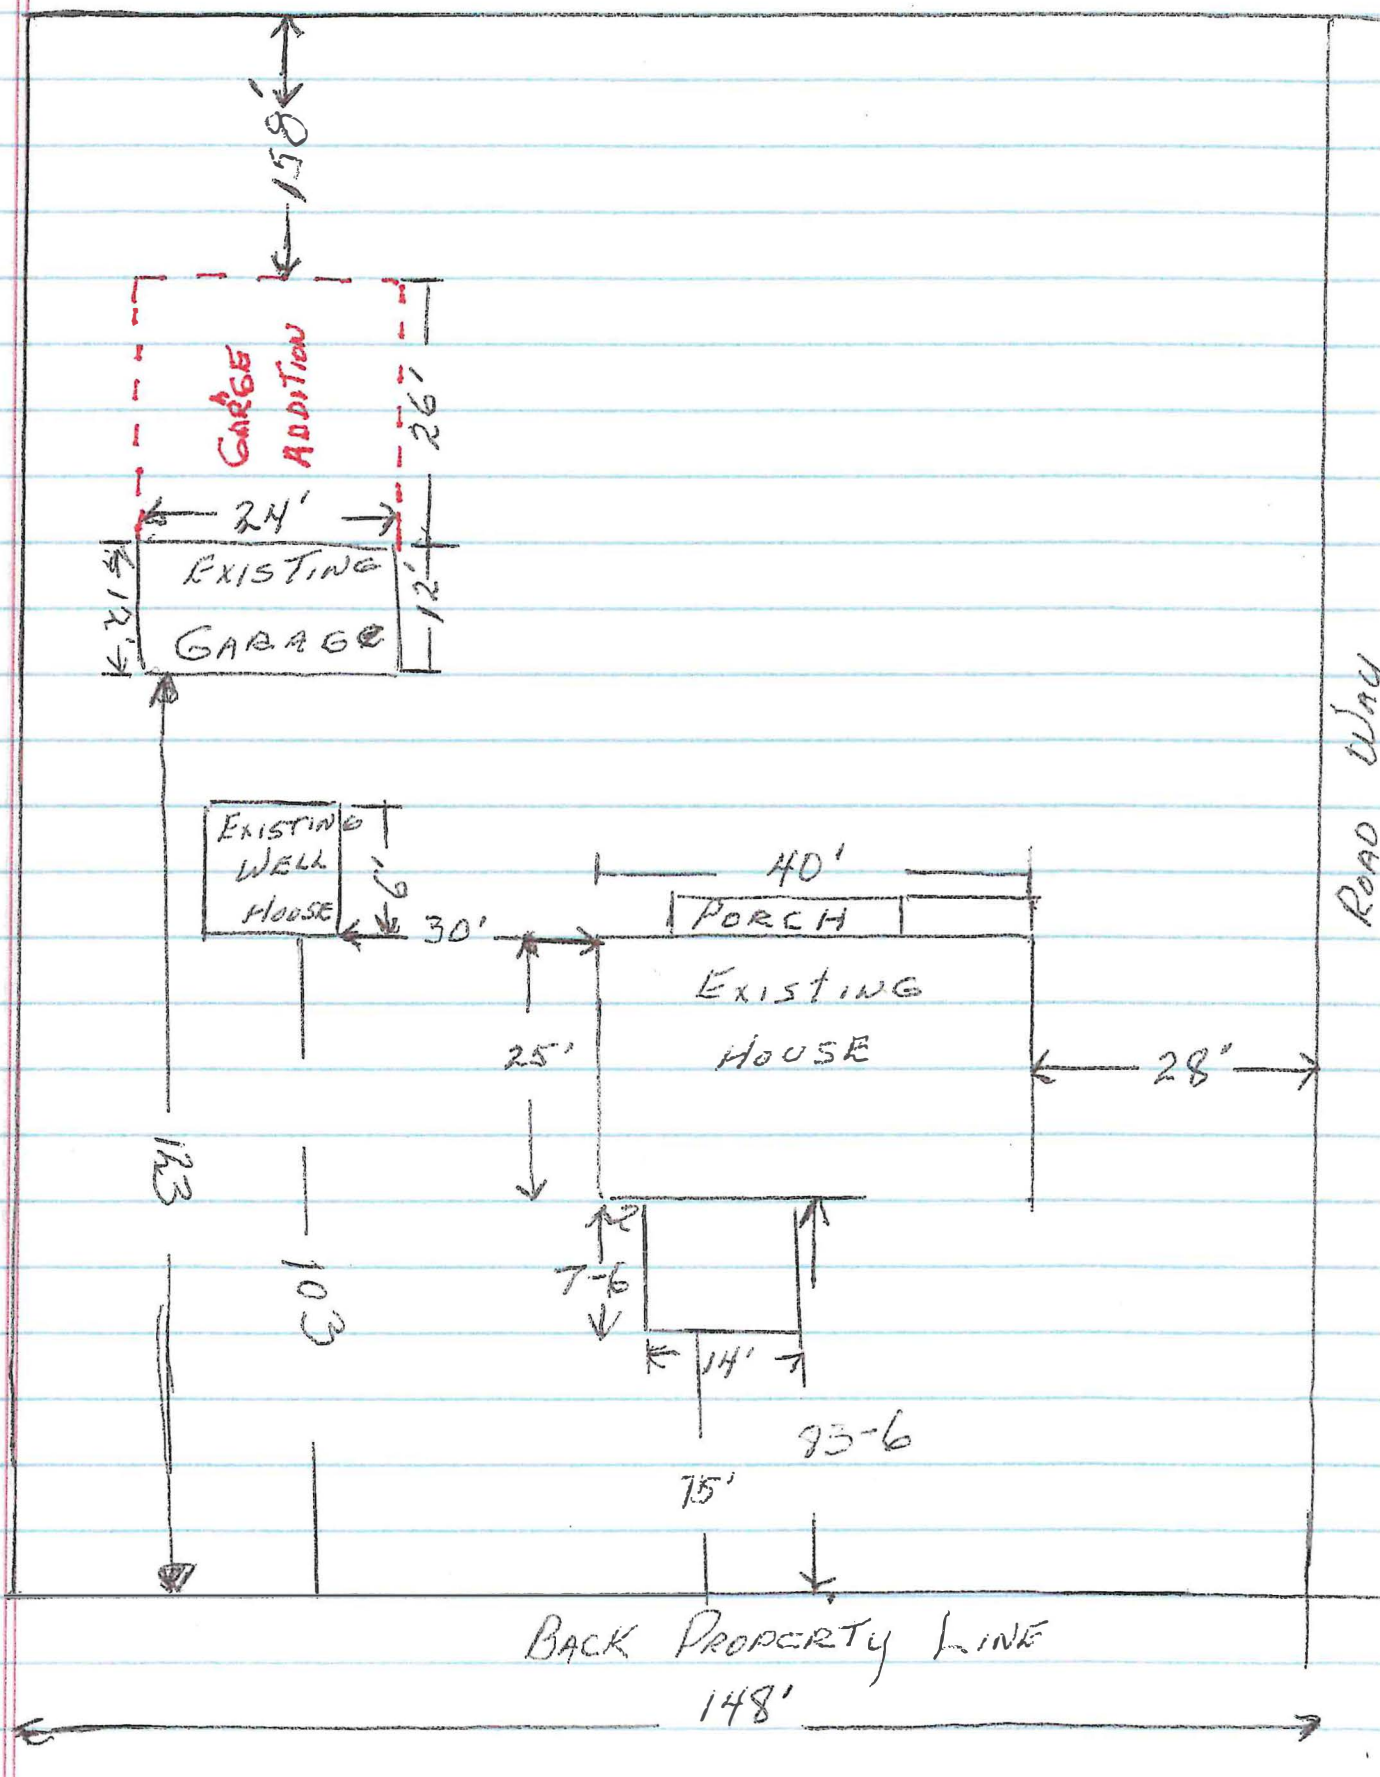 158'
GARGE
ADDITION
26'
24'
EXISTING
GARAGE
12'
12'
EXISTING
WELL
HOUSE
30'
40'
PORCH
EXISTING
HOUSE
25'
28'
ROAD WAY
123
103
7-6
14'
83-6
75'
BACK PROPERTY LINE
148'